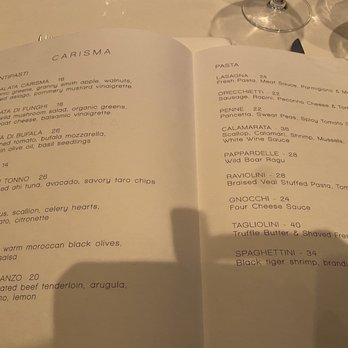 CARISMA
NTIPASTI
ALATA CARISMA 16
organic greens, granny smith apple, walnuts,
ed asiago, pommery mustard vinaigrette
TA DI FUNGHI - 18
wild mushroom salad, organic greens,
oat cheese, balsamic vinaigrette
TA DI BUFALA - 26
ed tomato, bufala mozzarella,
in olive oil, basil seedlings
14
TONNO 26
ed ahi tuna, avocado, savory taro chips
us, scallion, celery hearts,
ato, citronette
warm moroccan black olives,
salsa
ANZO 20
rated beef tenderloin, arugula,
no, lemon
PASTA
LASAGNA - 24
Fresh Pasta, Meat Sauce, Parmigiano & M
ORECCHIETTI - 22
Sausage, Rapini, Pecorino Cheese & Tom
PENNE - 22
Pancetta, Sweat Peas, Spicy Tomato S
CALAMARATA - 38
Scallop, Calamari, Shrimp, Mussels,
White Wine Sauce
PAPPARDELLE - 28
Wild Boar Ragu
RAVIOLINI - 28
Braised Veal Stuffed Pasta, Tom
GNOCCHI - 24
Four Cheese Sauce
TAGLIOLINI - 40
Truffle Butter & Shaved Fres
SPAGHETTINI - 34
Black tiger shrimp, brand